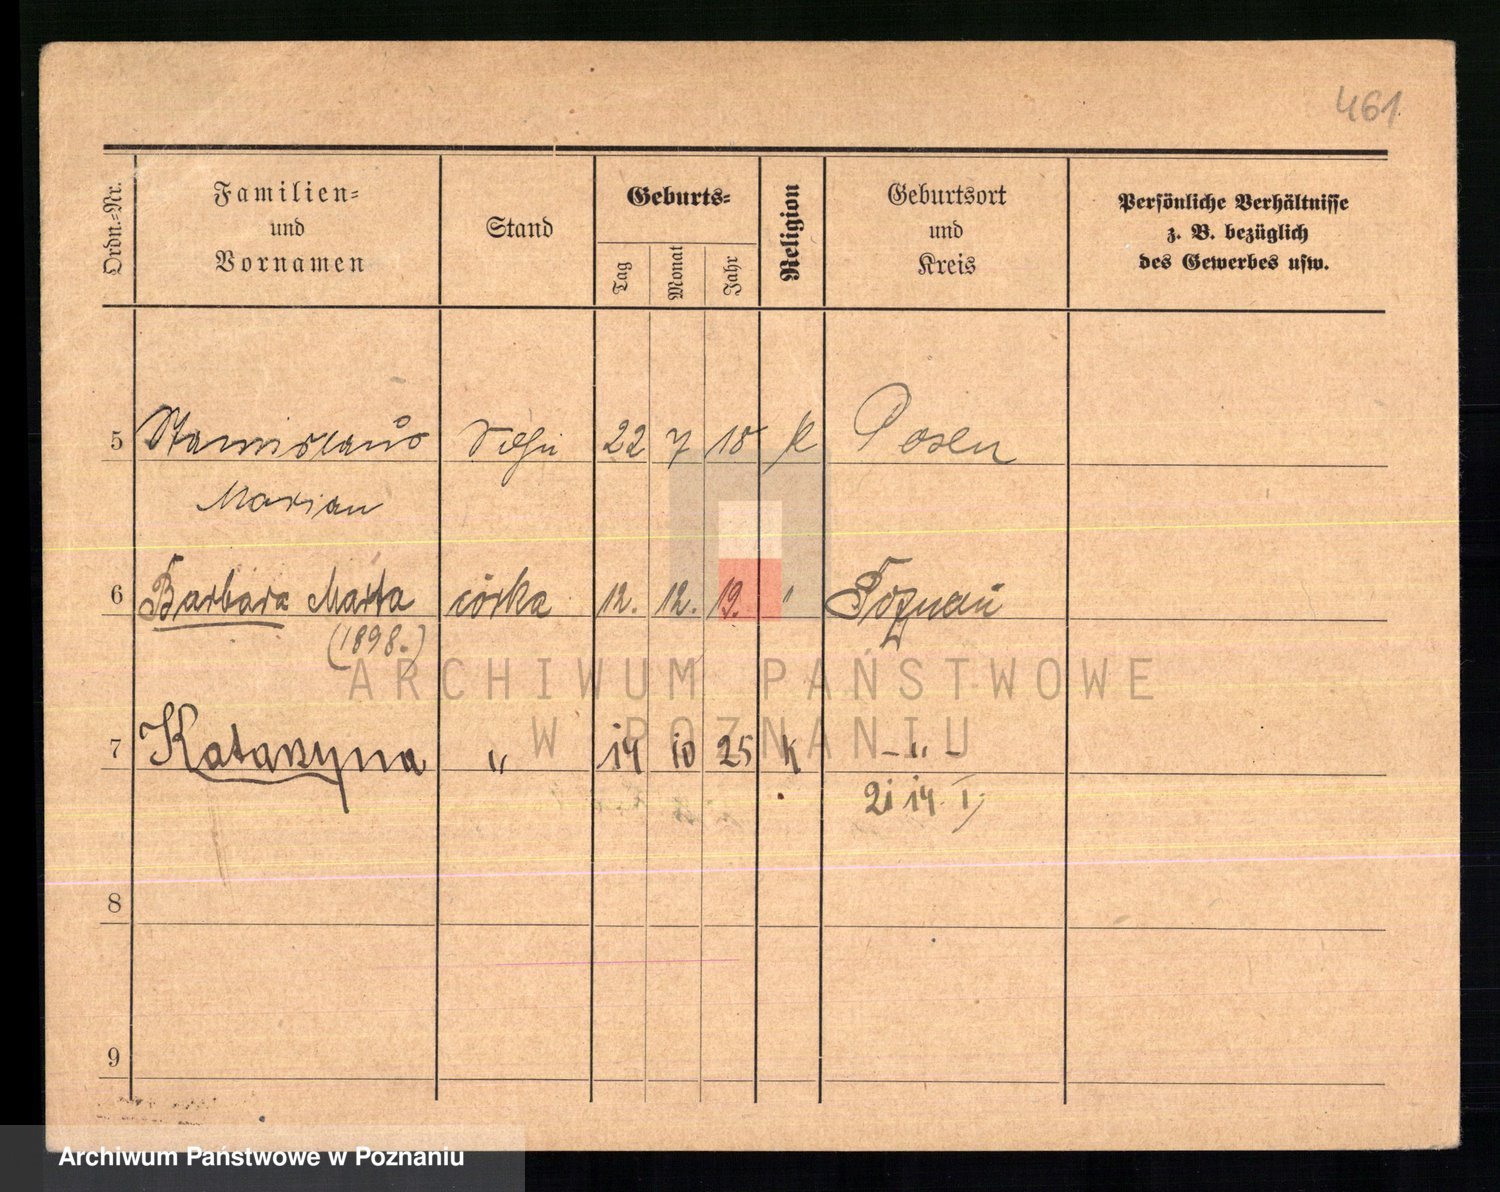 461
Ordn.=Nr.
Familien=
und
Vornamen
Stand
Geburts=
Tag
Monat
Jahr
Religion
Geburtsort
und
Kreis
Persönliche Verhältnisse
z. B. bezüglich
des Gewerbes usw.
5 Stanislaus Sohn 22 7 18 k Posen
Marian
6 Barbara Marta córka 12. 12. 19. " Poznań
(1898.)
7 Katarzyna " 14 10 25 k - " -
21 14. I.
8
9
ARCHIWUM PAŃSTWOWE
W POZNANIU
Archiwum Państwowe w Poznaniu